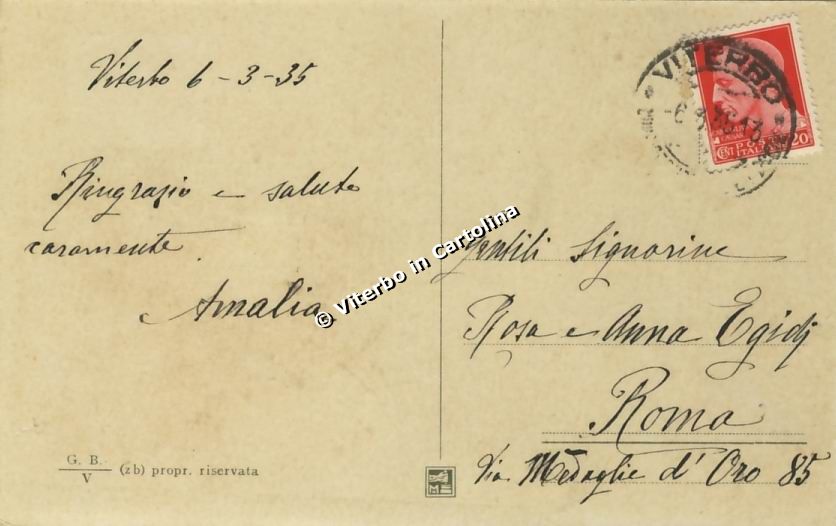 Viterbo 6-3-35
Ringrazio e saluto
caramente.
Amalia
G. B.
V
(zb) propr. riservata
© Viterbo in Cartolina
VITERBO
CENT POSTE
ITALIANE 20
Gentili Signorine
Rosa e Anna Egidj
Roma
Via Medaglie d'Oro 85